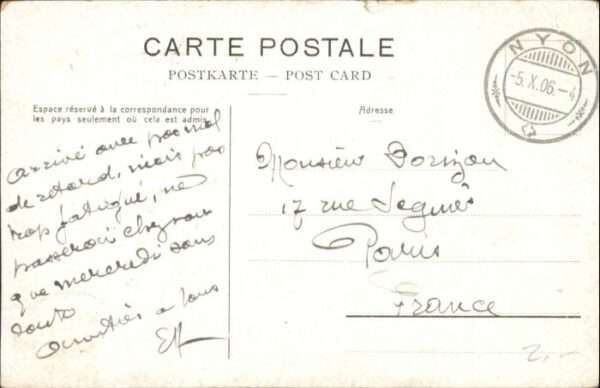 CARTE POSTALE
POSTKARTE — POST CARD
Espace réservé à la correspondance pour
les pays seulement où cela est admis.
Adresse
NYON
-5.X.06.-4
arrivé avec pas mal
de retard, mais pas
trop fatigué, ne
passerai chez vous
que mercredi sans
doute
Amitiés a tous
Monsieur Dorizon
17 rue Seguier
Paris
France
2,-